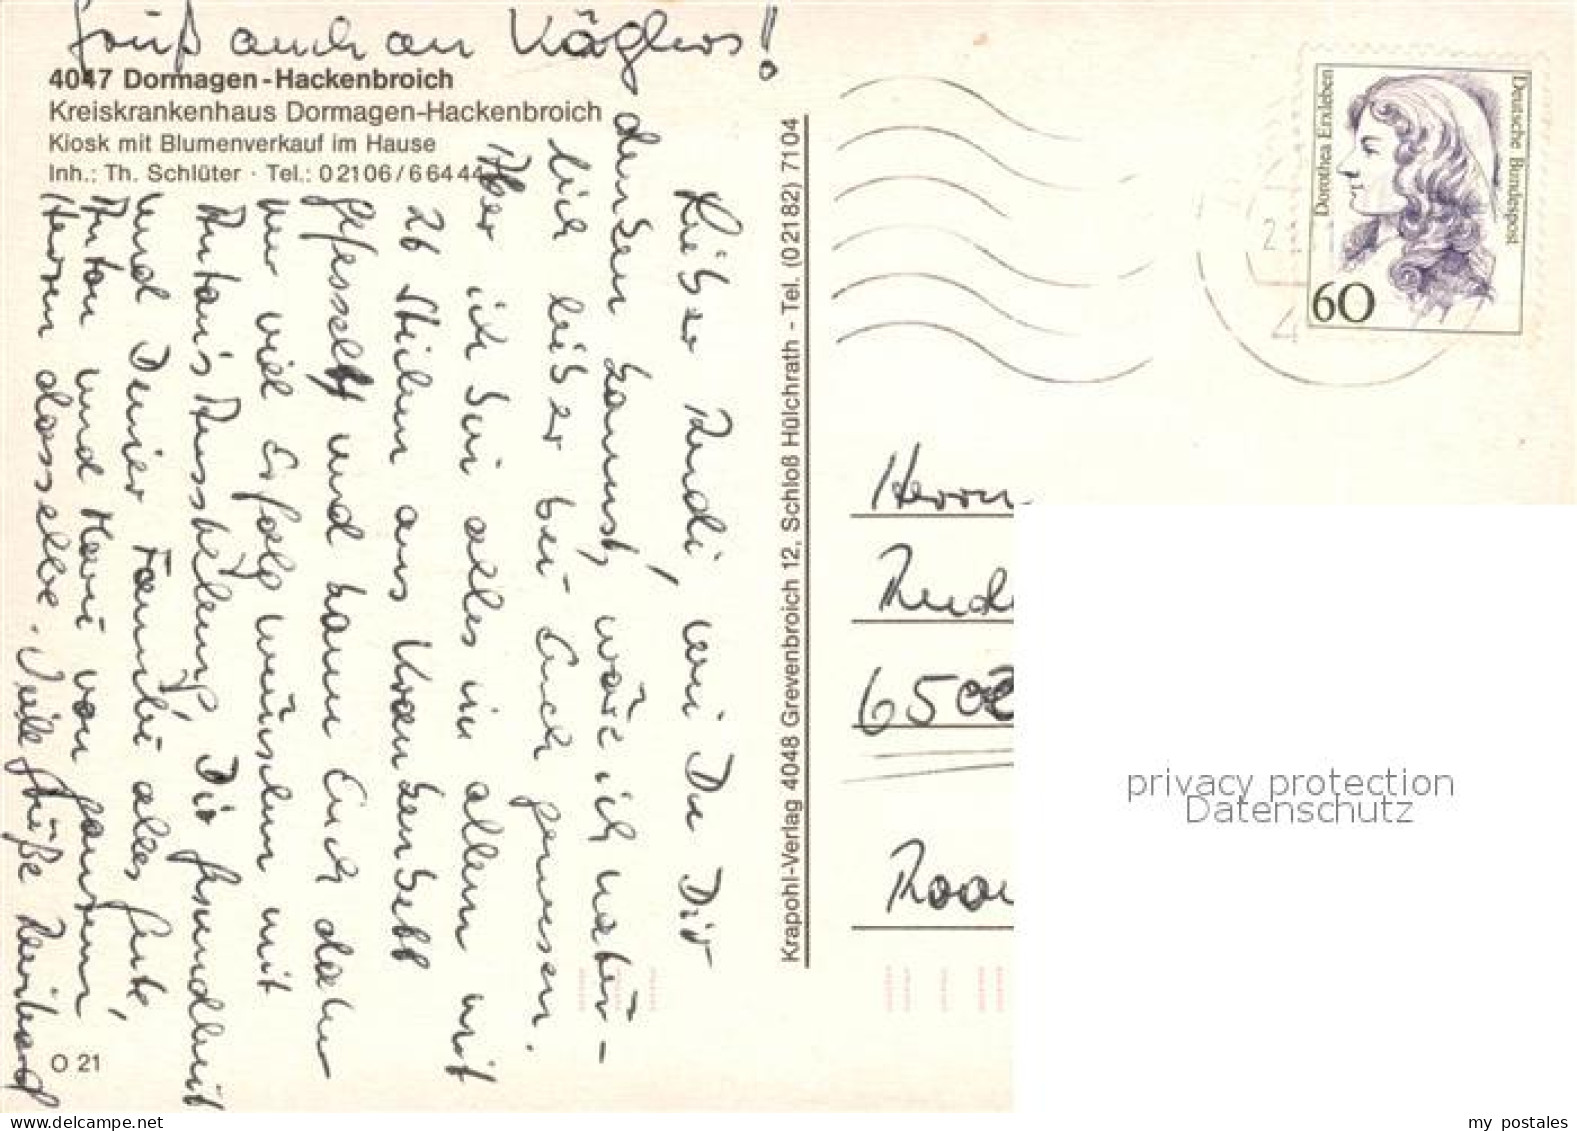 Gruß auch an Käglers!
4047 Dormagen-Hackenbroich
Kreiskrankenhaus Dormagen-Hackenbroich
Kiosk mit Blumenverkauf im Hause
Inh.: Th. Schlüter · Tel.: 02106/66444
Lieber Rudi, wie Du Dir
denken kannst, wäre ich natür-
lich lieber bei Euch gewesen.
Aber ich bin alles in allem mit
26 Stichen ans Krankenbett
gefesselt und kann Euch daher
nur viel Erfolg wünschen mit
Antons Ausstellung, Dir Gesundheit
und Deiner Familie alles Gute,
Anton und Mari von ganzem
Herzen dasselbe. Viele Grüße
O 21
Krapohl-Verlag 4048 Grevenbroich 12, Schloß Hülchrath - Tel. (02182) 7104
Dorothea Erxleben
Deutsche Bundespost
60
2
4
Herrn
Rudi
6502
privacy protection
Datenschutz
www.delcampe.net
my_postales